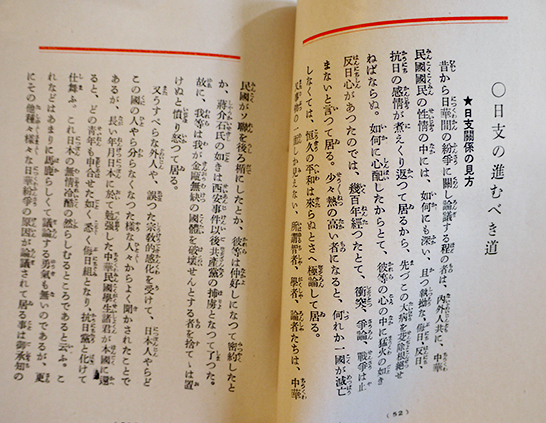 〇日支の進むべき道
★日支關係の見方
昔から日華間の紛爭に關し論議する程の者は、内外人共に、中華
民國國民の性情の中には、如何にも深い、且つ執拗な、侮日、反日、
抗日の感情が煮えくり返つて居るから、先づこの大病を芟除根絶せ
ねばならぬ。如何に心配したからとて、彼等の心の中に猛火の如き
反日心があつたのでは、幾百年經つたとて、衝突、爭論、戰爭は止
まないと言つて居る。少々熱の高い者になると、何れか一國が滅亡
しなくては、恒久の平和は來らぬとさへ極論して居る。
事物の一面しか見えない、所謂智者、學者、論者たちは、中華
(52)
民國がソ聯を後ろ楯にしたとか、彼等は仲好しになつて密約したと
か、蔣介石氏の如きは西安事件以後共產黨の捕虜となつて了つた。
故に、我等は我が金甌無缺の國體を破壞せんとする者を捨てゝは置
けぬと憤り怒つて居る。
又うすぺらな外人や、誤つた宗敎的感化を受けて、日本人やらど
この國人やら分らなくなつた樣な人々からよく聞かされたことで
あるが、長い年月日本に於て勉强した中華民國學生諸君が本國に還
ると、どの靑年も申合せた如く、悉く侮日組となり、抗日黨と化けて
仕舞ふ。これ日本の無情冷酷の然らしむるところであると云ふ。こ
れなどはあまりに馬鹿らしくて議論する勇氣も無いのであるが、更
にその他種々樣々な日華紛爭の原因が論議されて居る事は御承知の